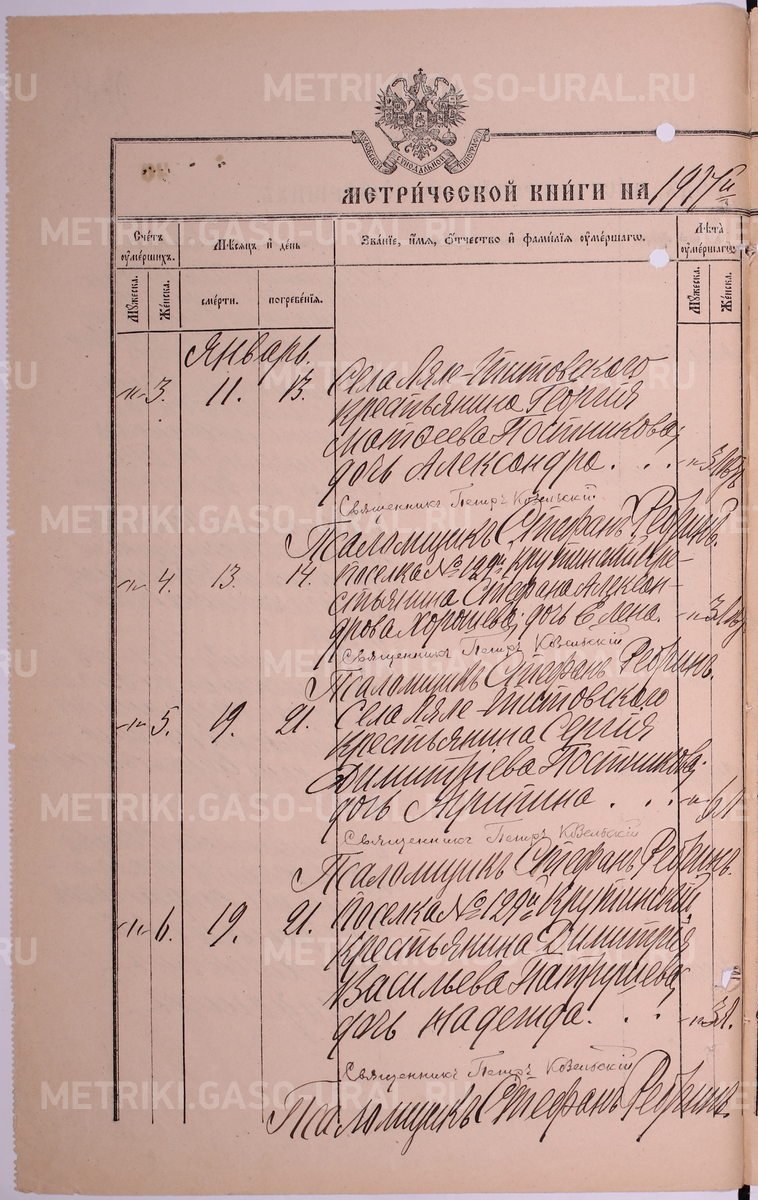 METRIKI.GASO-URAL.RU
СУНОДАЛЬНОЙ
МЕТРИ́ЧЕСКОЙ КНИ́ГИ НА 1917 й
Сче́тъ ᲂу҆ме́ршихъ.
Мѣ́сяцъ и҆ де́нь
Зва́нїе, и҆́мя, ѻ҆́тчество и҆ фами́лїя ᲂу҆ме́ршагѡ.
Лѣ́та ᲂу҆ме́ршагѡ
Мꙋ́жеска.
Же́нска.
сме́рти.
погребе́нїя.
Мꙋ́жеска.
Же́нска.
Январь.
-"- 3. 11. 13. Села Ляле-Титовского
крестьянина Георгія
Матѳеева Постникова;
дочь Александра . . . -"-
Священникъ Петръ Козельскій
Псаломщикъ Стефанъ Ребринъ.
-"- 4. 13. 14. Поселка № 129й Крутинскій кре-
стьянина Стефана Алексан-
дрова Хорошева; дочь Елена. -"-
Священникъ Петръ Козельскій
Псаломщикъ Стефанъ Ребринъ.
-"- 5. 19. 21. Села Ляле-Титовского
крестьянина Сергія
Димитріева Постникова;
дочь Иринина . . . -"-
Священникъ Петръ Козельскій
Псаломщикъ Стефанъ Ребринъ.
-"- 6. 19. 21. Поселка № 129й Крутинскій,
крестьянина Димитрія
Васильева Патрушева;
дочь Надежда. . . -"- 3 л.
Священникъ Петръ Козельскій
Псаломщикъ Стефанъ Ребринъ.